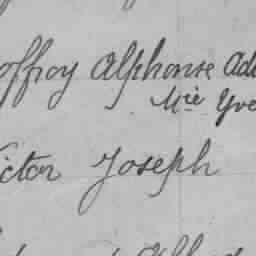 offroy Alphonse Ad
Mie Yve
ictor Joseph